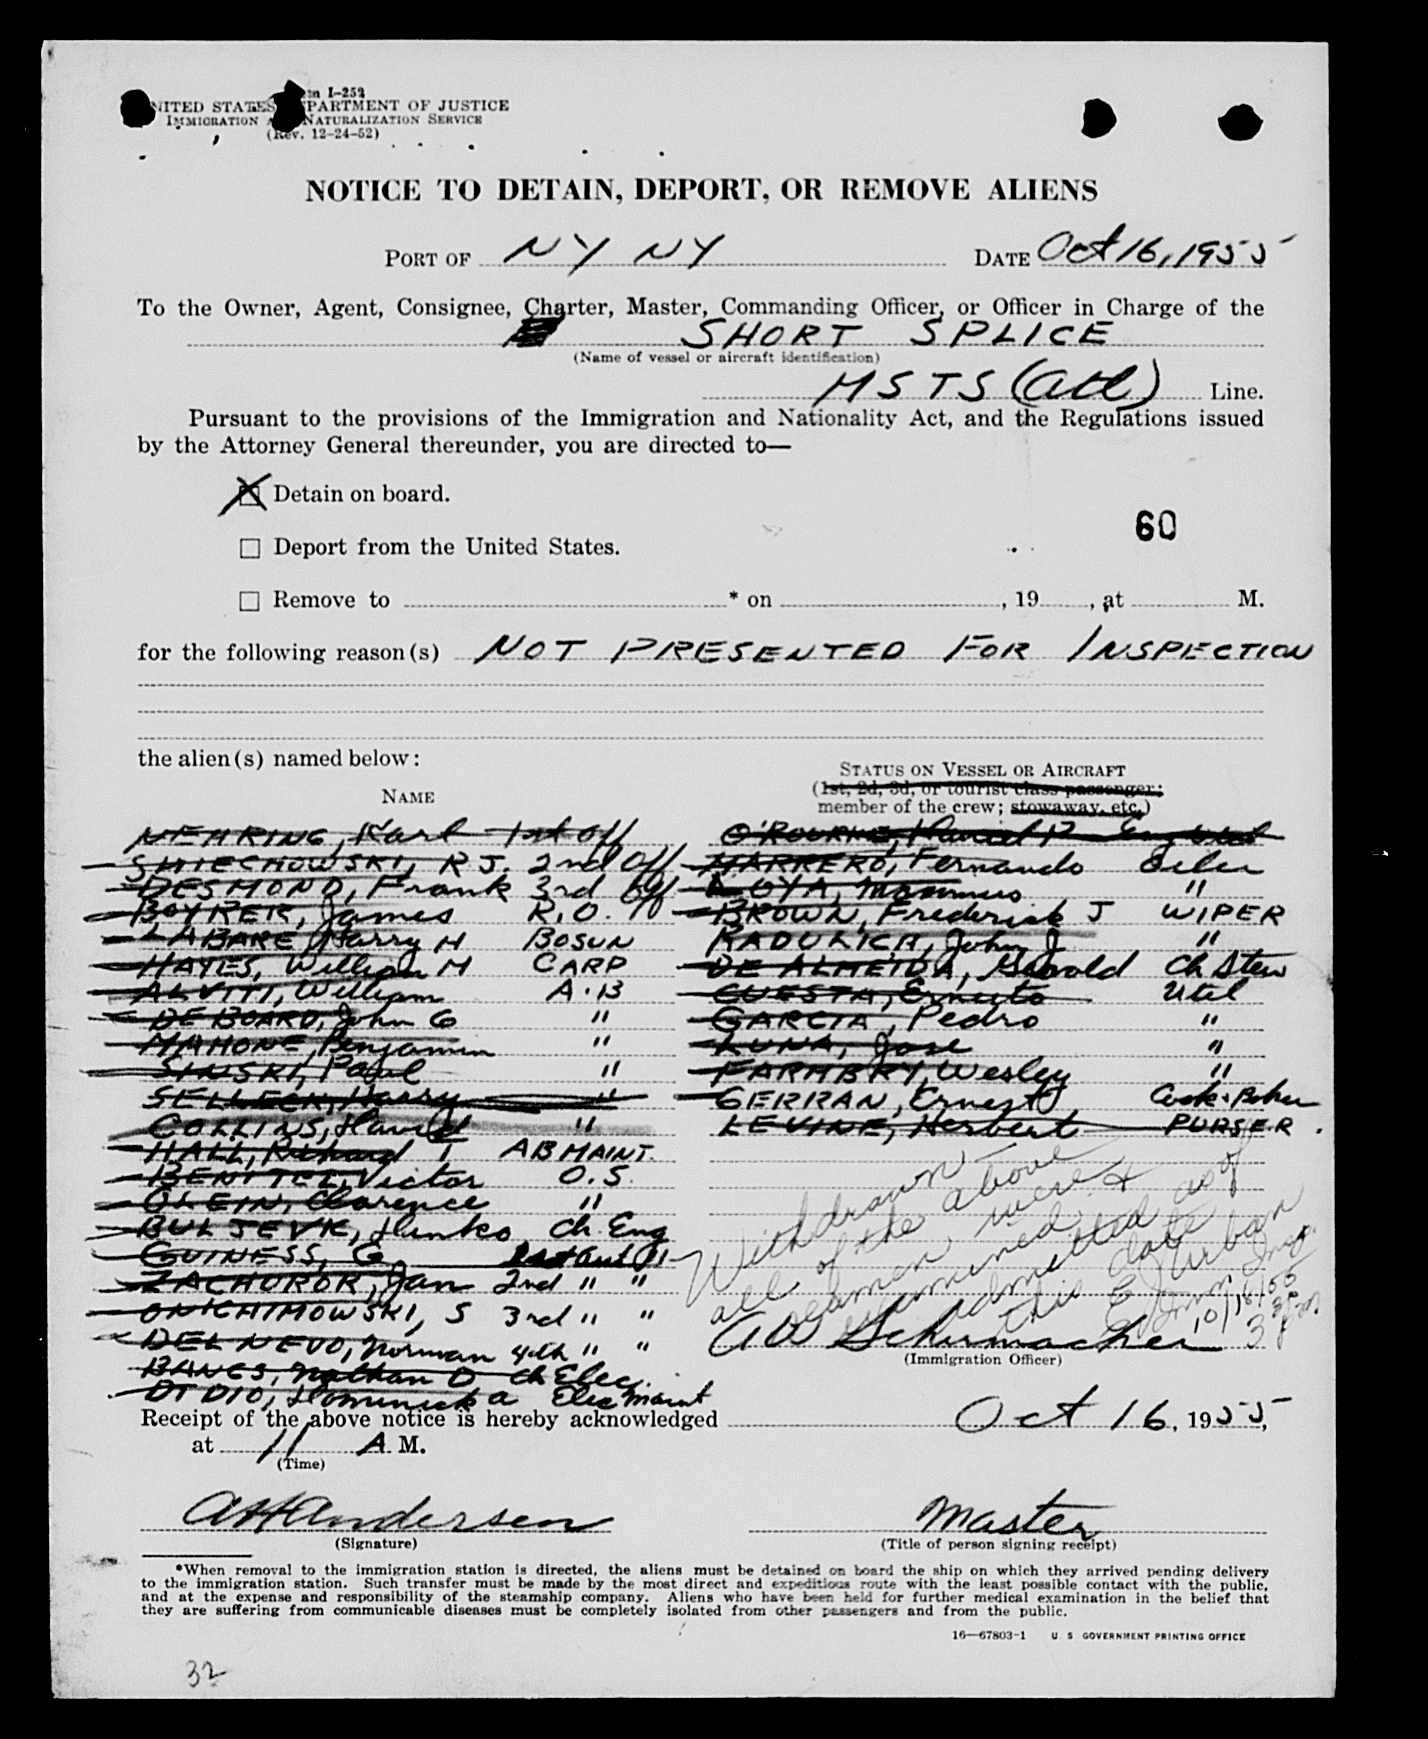 Form I-259
UNITED STATES DEPARTMENT OF JUSTICE
IMMIGRATION AND NATURALIZATION SERVICE
(Rev. 12-24-52)
NOTICE TO DETAIN, DEPORT, OR REMOVE ALIENS
PORT OF NY NY DATE Oct 16, 1955
To the Owner, Agent, Consignee, Charter, Master, Commanding Officer, or Officer in Charge of the
SHORT SPLICE
(Name of vessel or aircraft identification)
MSTS (Atl) Line.
Pursuant to the provisions of the Immigration and Nationality Act, and the Regulations issued
by the Attorney General thereunder, you are directed to—
Detain on board.
60
Deport from the United States.
Remove to * on , 19 , at M.
for the following reason(s) NOT PRESENTED FOR INSPECTION
the alien(s) named below:
STATUS ON VESSEL OR AIRCRAFT
(1st, 2d, 3d, or tourist class passenger;
member of the crew; stowaway, etc.)
NAME
NEHRING, Karl 1st Off
SMIECHOWSKI, R J. 2nd Off
DESMOND, Frank 3rd Off
BOYKER, James R.O.
LABARE, Harry H BOSUN
HAYES, William H CARP
ALVITI, William A.B
DE BOARD, John G "
MAHONE, Benjamin "
SINSKI, Paul "
SELLECK, Harry "
COLLINS, Harold "
HALL, Richard T AB MAINT.
BENITEZ, Victor O.S.
OLEIN, Clarence "
BULJEVK, Hinko Ch Eng
GUINESS, G 1st Ass't "
ZACHUROR, Jan 2nd " "
ONICHIMOWSKI, S 3rd " "
DEL NEVO, Norman 4th " "
BANGS, Nathan D Ch Elec.
DI DIO, Dominick A Elec Maint
O'ROURKE, Daniel P Eng Util
MARRERO, Fernando Oiler
LOYA, Maximus "
BROWN, Frederick J WIPER
RADULICA, John J "
DE ALMEIDA, Harold Ch Stew
CUESTA, Ernesto Util
GARCIA, Pedro "
LUNA, Jose "
FARHBRY, Wesley "
GERRAN, Ernest J Cook & Baker
LEVINE, Herbert PURSER.
Withdrawn
all of the above
seamen were
examined &
admitted as of
this date
E J Urban
Imm Insp.
10/16/55
3 30 pm
A W Schirmacher
(Immigration Officer)
Receipt of the above notice is hereby acknowledged Oct 16, 1955,
at 11 A. M.
(Time)
A H Andersen Master
(Signature) (Title of person signing receipt)
*When removal to the immigration station is directed, the aliens must be detained on board the ship on which they arrived pending delivery
to the immigration station. Such transfer must be made by the most direct and expeditious route with the least possible contact with the public,
and at the expense and responsibility of the steamship company. Aliens who have been held for further medical examination in the belief that
they are suffering from communicable diseases must be completely isolated from other passengers and from the public.
16—67803-1 U. S. GOVERNMENT PRINTING OFFICE
32